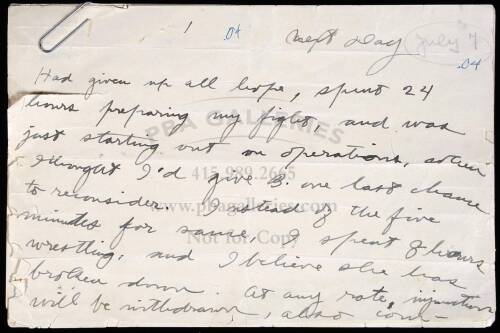 1 04 Next Day July 7
04
Had given up all hope, spent 24
hours preparing my fight, and was
PBA GALLERIES
just starting out on operations, when
I thought I'd give B. one last chance
415.989.2665
to reconsider. Instead of the five
www.pbagalleries.com
minutes for same, I spent 8 hours
Not for Copy
wrestling, and I believe she has
broken down. At any rate, injunction
will be withdrawn, also com-